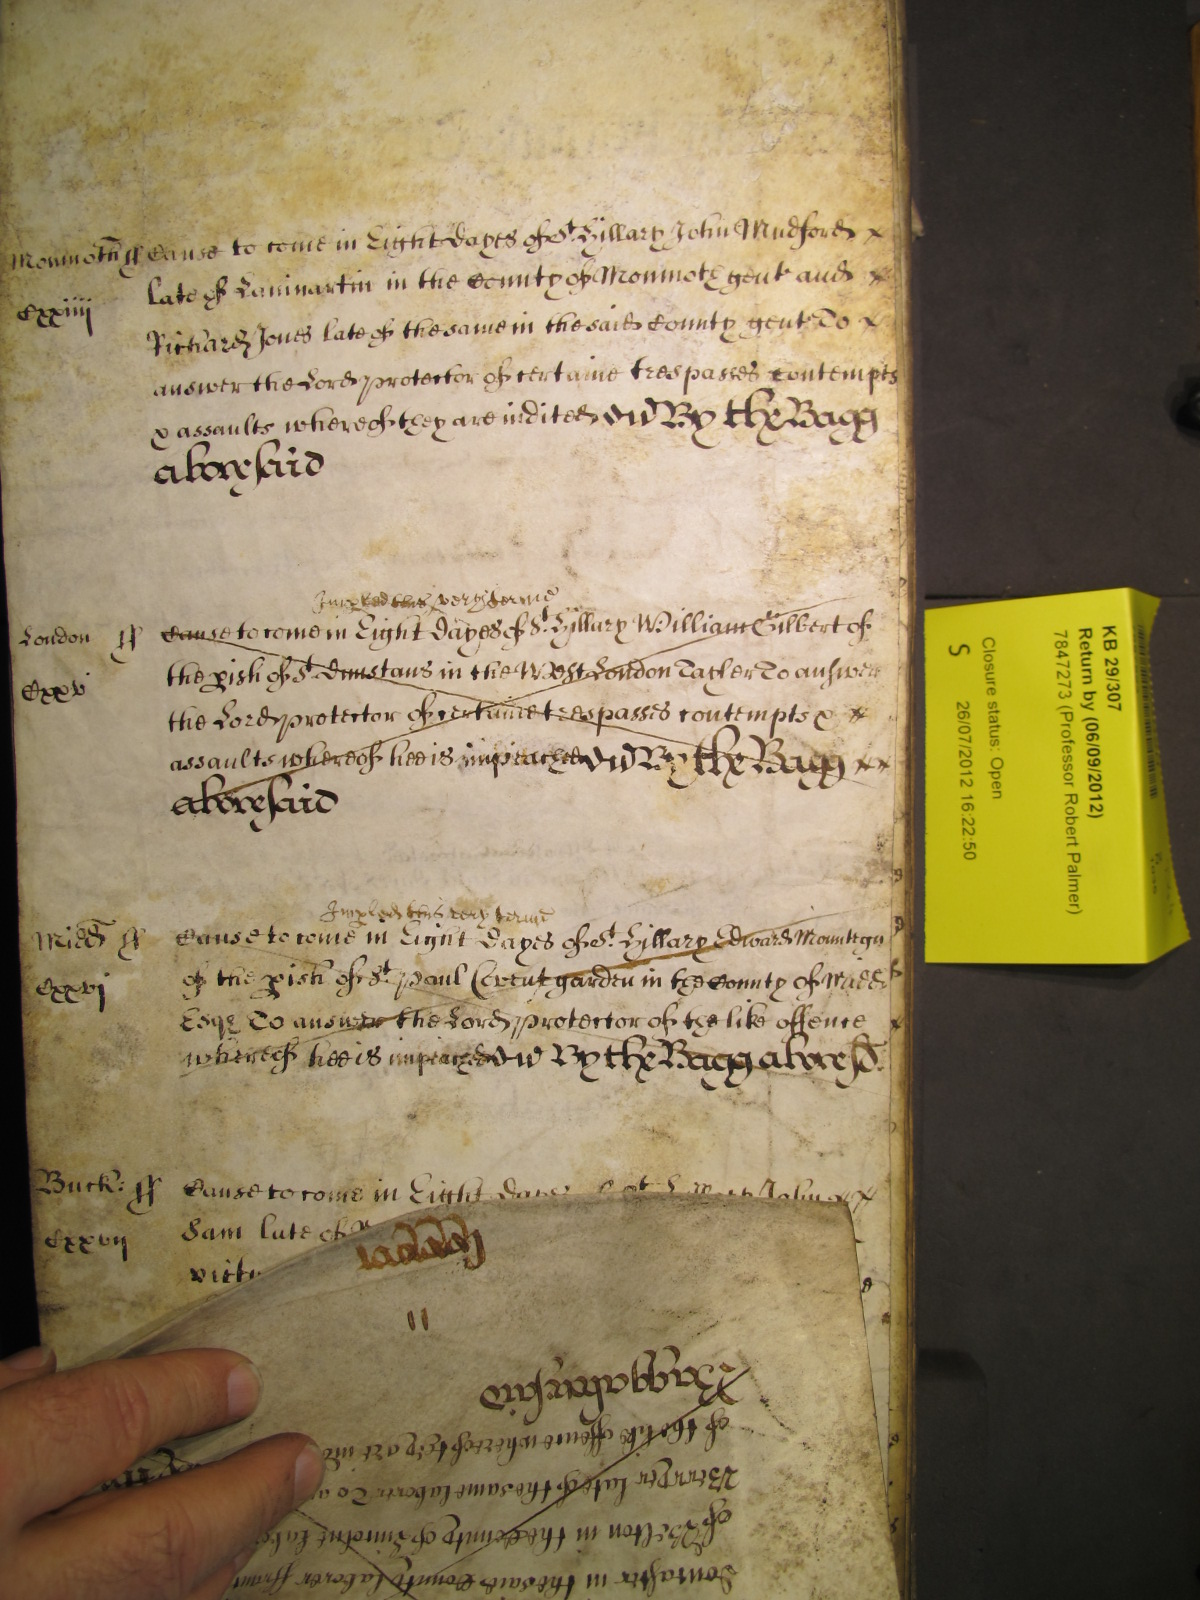 Monmoth ss Cause to come in Eight Dayes of St Hillary John Mudford x
Cxxiiii late of Lanmartin in the County of Monmoth gent and x
Richard Jones late of the same in the said County gent To x
answer the Lord protector of certaine trespasses contempts
& assaults whereof they are indited By the Bagg
aboresaid
this very terme
London ss Cause to come in Eight Dayes of St Hillary William Gilbert of
Cxxv the pish of St Dunstans in the West London Tayler To answer
the Lord protector of certaine trespasses contempts & x
assaults whereof hee is impeached By the Bagg xx
aboresaid
this very terme
Midd ss Cause to come in Eight Dayes of St Hillary Edward Mountegu
Cxxvi of the pish of St paul Covent garden in the County of Midd
Esqr To answer the Lord protector of the like offence x
whereof hee is impeached By the Bagg aboresd
Buck: ss Cause to come in Eight Dayes John xx
Cxxvii Sam late of
victu
11
Bagg aforesaid
of the like offence whereof they are
late of the same laborer To
in the County of laborer
in the said County laborer
KB 29/307
Return by (06/09/2012)
7847273 (Professor Robert Palmer)
Closure status: Open
S 26/07/2012 16:22:50